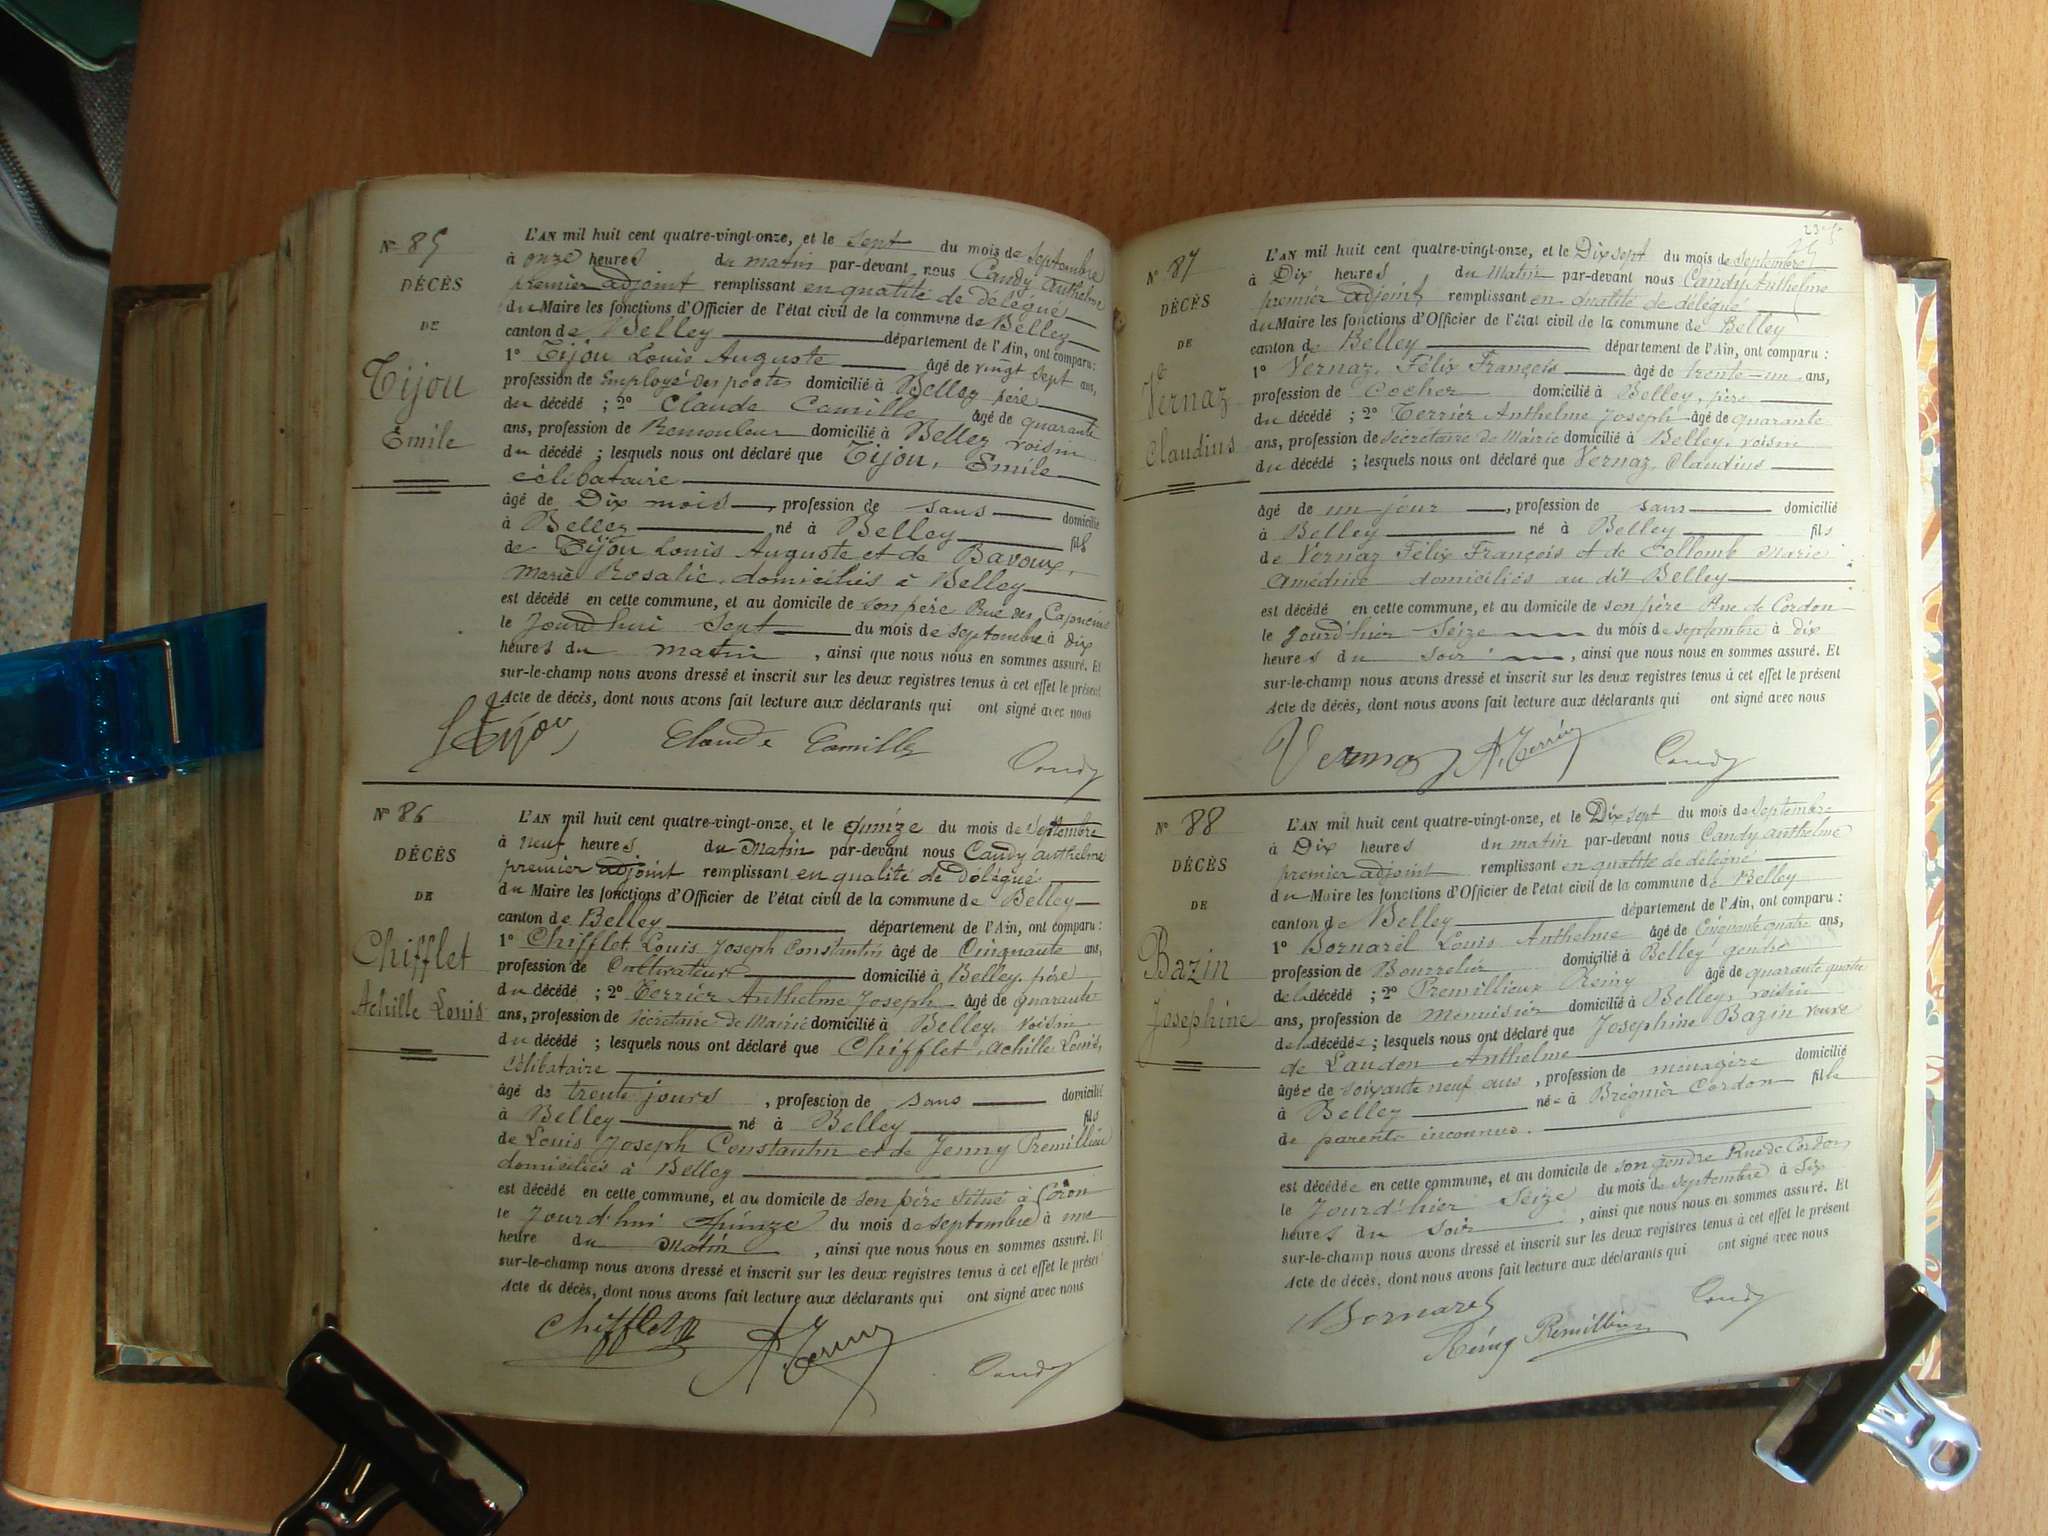 N° 85
DÉCÈS
DE
Tijou
Émile
L'AN mil huit cent quatre-vingt-onze, et le sept du mois de septembre
à onze heures du matin par-devant nous Candy Anthelme
premier adjoint remplissant en qualité de délégué
du Maire les fonctions d'Officier de l'état civil de la commune de Belley
canton de Belley département de l'Ain, ont comparu :
1° Tijou Louis Auguste âgé de vingt sept ans,
profession de Employé des postes domicilié à Belley père
du décédé ; 2° Claude Camille âgé de quarante
ans, profession de Remouleur domicilié à Belley voisin
du décédé ; lesquels nous ont déclaré que Tijou, Émile
célibataire
âgé de Dix mois, profession de sans domicilié
à Belley, né à Belley fils
de Tijou Louis Auguste et de Bavoux,
Marie Rosalie, domiciliés à Belley
est décédé en cette commune, et au domicile de son père Rue des Capucins
le Jourd'hui Sept du mois de septembre à dix
heures du matin, ainsi que nous nous en sommes assuré. Et
sur-le-champ nous avons dressé et inscrit sur les deux registres tenus à cet effet le présent
Acte de décès, dont nous avons fait lecture aux déclarants qui ont signé avec nous
Tijou Claude Camille Candy
N° 86
DÉCÈS
DE
Chifflet
Achille Louis
L'AN mil huit cent quatre-vingt-onze, et le quinze du mois de septembre
à neuf heures du matin par-devant nous Candy Anthelme
premier adjoint remplissant en qualité de Délégué
du Maire les fonctions d'Officier de l'état civil de la commune de Belley
canton de Belley département de l'Ain, ont comparu :
1° Chifflet Louis Joseph Constantin âgé de Cinquante ans,
profession de Cultivateur domicilié à Belley, père
du décédé ; 2° Terrier Anthelme Joseph âgé de quarante
ans, profession de Sécrétaire de Mairie domicilié à Belley, voisin
du décédé ; lesquels nous ont déclaré que Chifflet, Achille Louis,
Célibataire
âgé de trente jours, profession de sans domicilié
à Belley né à Belley fils
de Louis Joseph Constantin et de Jenny Premillieu
domiciliés à Belley
est décédé en cette commune, et au domicile de son père situé à Coron
le Jourd'hui quinze du mois de septembre à une
heure du Matin, ainsi que nous nous en sommes assuré. Et
sur-le-champ nous avons dressé et inscrit sur les deux registres tenus à cet effet le présent
Acte de décès, dont nous avons fait lecture aux déclarants qui ont signé avec nous
Chifflet A Terrier Candy
N° 87
DÉCÈS
DE
Vernaz
Claudius
L'AN mil huit cent quatre-vingt-onze, et le Dix sept du mois de septembre
à Dix heures du Matin par-devant nous Candy Anthelme
premier adjoint remplissant en qualité de délégué
du Maire les fonctions d'Officier de l'état civil de la commune de Belley
canton de Belley département de l'Ain, ont comparu :
1° Vernaz, Félix François âgé de trente-un ans,
profession de Cocher domicilié à Belley, père
du décédé ; 2° Terrier Anthelme Joseph âgé de quarante
ans, profession de sécrétaire de Mairie domicilié à Belley, voisin
du décédé ; lesquels nous ont déclaré que Vernaz, Claudius
âgé de un jour, profession de sans domicilié
à Belley né à Belley fils
de Vernaz Félix François et de Collomb Marie
Amédine domiciliés au dit Belley
est décédé en cette commune, et au domicile de son père Rue de Cordon
le Jourd'hier Seize du mois de septembre à dix
heures du soir, ainsi que nous nous en sommes assuré. Et
sur-le-champ nous avons dressé et inscrit sur les deux registres tenus à cet effet le présent
Acte de décès, dont nous avons fait lecture aux déclarants qui ont signé avec nous
Vernaz A. Terrier Candy
N° 88
DÉCÈS
DE
Bazin
Josephine
L'AN mil huit cent quatre-vingt-onze, et le Dix sept du mois de septembre
à Dix heures du matin par-devant nous Candy Anthelme
premier adjoint remplissant en qualité de délégué
du Maire les fonctions d'Officier de l'état civil de la commune de Belley
canton de Belley département de l'Ain, ont comparu :
1° Bornarel Louis Anthelme âgé de Cinquante quatre ans,
profession de Bourrelier domicilié à Belley gendre
de la décédé ; 2° Premillieux Rémy âgé de quarante quatre
ans, profession de menuisier domicilié à Belley, voisin
de la décédée ; lesquels nous ont déclaré que Josephine Bazin veuve
de Landon Anthelme
âgée de soixante neuf ans, profession de ménagère domicilié
à Belley née à Brégnier Cordon fille
de parents inconnus.
est décédée en cette commune, et au domicile de son gendre Rue de Cordon
le Jourd'hier Seize du mois de septembre à Six
heures du soir, ainsi que nous nous en sommes assuré. Et
sur-le-champ nous avons dressé et inscrit sur les deux registres tenus à cet effet le présent
Acte de décès, dont nous avons fait lecture aux déclarants qui ont signé avec nous
Bornarel Candy
Rémy Premillieu